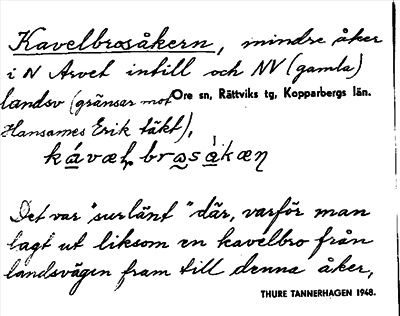 Kavelbrosåkern, mindre åker
i N Arvet intill och NV (gamla)
landsv (gränsar mot Ore sn, Rättviks tg, Kopparbergs län.
Hansames Erik täkt),
Det var "surlänt" där, varför man
lagt ut liksom en kavelbro från
landsvägen fram till denna åker,
THURE TANNERHAGEN 1948.